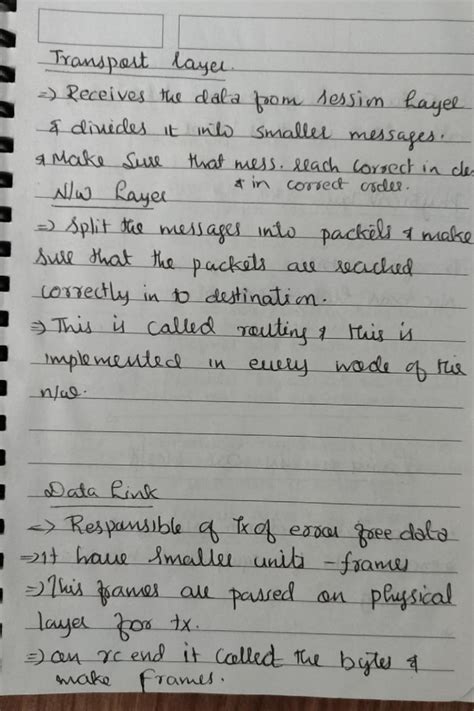 Transport Layer
=> Receives the data from session Layer
& divides it into smaller messages.
& Make Sure that mess. reach correct in des
& in correct order.
N/w Layer
=> Split the messages into packets & make
sure that the packets are reached
correctly in to destination.
=> This is called routing & this is
implemented in every node of the
n/w.
Data Link
=> Responsible of Tx of error free data
=> It have smaller units - frames
=> This frames are passed on physical
layer for tx.
=> on rc end it called the bytes &
make frames.